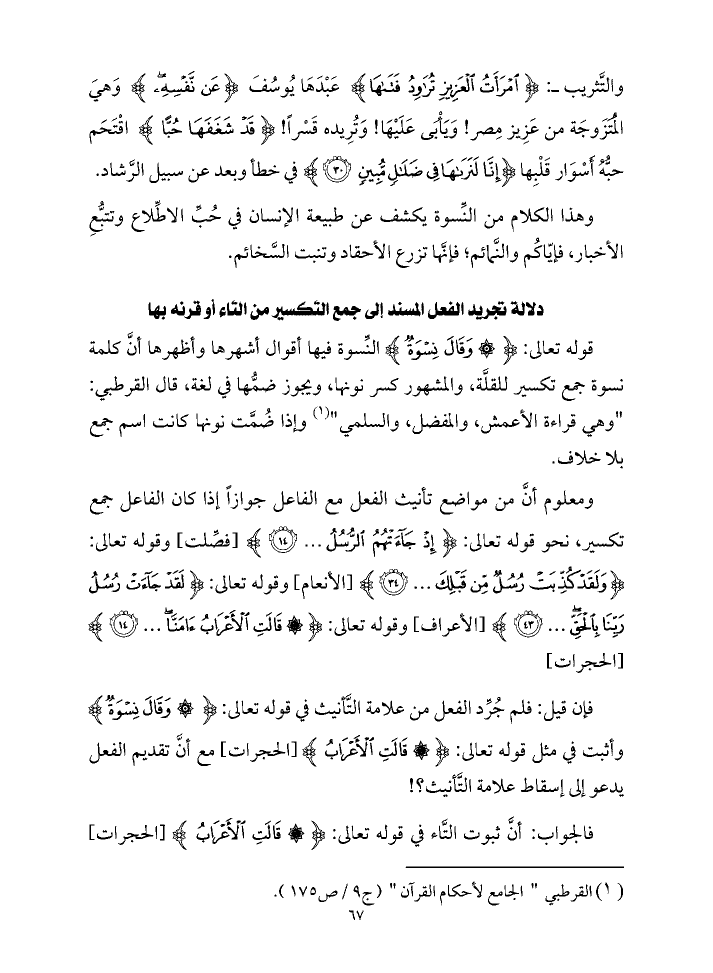 والتَّثريب ـ: ﴿ ٱمۡرَأَتُ ٱلۡعَزِيزِ تُرَٰوِدُ فَتَىٰهَا ﴾ عَبْدَهَا يُوسُفَ ﴿ عَن نَّفۡسِهِۦۖ ﴾ وَهيَ
المُتَزوجَة من عَزِيز مِصر! وَيَأْبَى عَلَيْهَا! وَتُريده قَسْراً! ﴿ قَدۡ شَغَفَهَا حُبًّا ﴾ اقْتَحَم
حبُّهُ أَسْوَار قَلْبِها ﴿ إِنَّا لَنَرَىٰهَا فِي ضَلَٰلٖ مُّبِينٖ ٣٠ ﴾ في خطأ وبعد عن سبيل الرَّشاد.
وهذا الكلام من النِّسوة يكشف عن طبيعة الإنسان في حُبِّ الاطِّلاع وتتبُّعِ
الأخبار، فإيّاكُم والنَّمائم؛ فإنَّها تزرع الأحقاد وتنبت السَّخائم.
دلالة تجريد الفعل المسند إلى جمع التكسير من التاء أو قرنه بها
قوله تعالى: ﴿ ۞ وَقَالَ نِسۡوَةٞ ﴾ النِّسوة فيها أقوال أشهرها وأظهرها أنَّ كلمة
نسوة جمع تكسير للقلَّة، والمشهور كسر نونها، ويجوز ضمُّها في لغة، قال القرطبي:
"وهي قراءة الأعمش، والمفضل، والسلمي"(١) وإذا ضُمَّت نونها كانت اسم جمع
بلا خلاف.
ومعلوم أنَّ من مواضع تأنيث الفعل مع الفاعل جوازاً إذا كان الفاعل جمع
تكسير، نحو قوله تعالى: ﴿ إِذۡ جَآءَتۡهُمُ ٱلرُّسُلُ ... ١٤ ﴾ [فصِّلت] وقوله تعالى:
﴿ وَلَقَدۡ كُذِّبَتۡ رُسُلٞ مِّن قَبۡلِكَ ... ٣٤ ﴾ [الأنعام] وقوله تعالى: ﴿ لَقَدۡ جَآءَتۡ رُسُلُ
رَبِّنَا بِٱلۡحَقِّۖ ... ٤٣ ﴾ [الأعراف] وقوله تعالى: ﴿ ۞ قَالَتِ ٱلۡأَعۡرَابُ ءَامَنَّاۖ ... ١٤ ﴾
[الحجرات]
فإن قيل: فلم جُرِّد الفعل من علامة التَّأنيث في قوله تعالى: ﴿ ۞ وَقَالَ نِسۡوَةٞ ﴾
وأثبت في مثل قوله تعالى: ﴿ ۞ قَالَتِ ٱلۡأَعۡرَابُ ﴾ [الحجرات] مع أنَّ تقديم الفعل
يدعو إلى إسقاط علامة التَّأنيث؟!
فالجواب: أنَّ ثبوت التَّاء في قوله تعالى: ﴿ ۞ قَالَتِ ٱلۡأَعۡرَابُ ﴾ [الحجرات]
(١) القرطبي " الجامع لأحكام القرآن " ( ج٩ / ص١٧٥ ).
٦٧